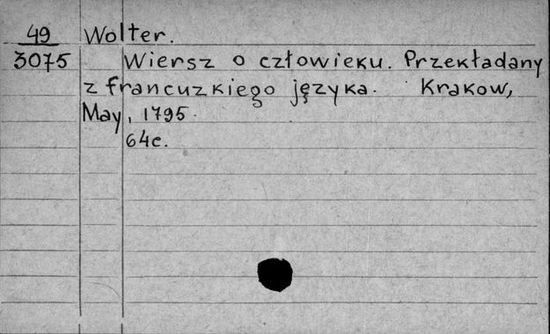 49 Wolter.
3075 Wiersz o człowieku. Przekładany
z francuzkiego języka. Krakow,
May, 1795.
64c.